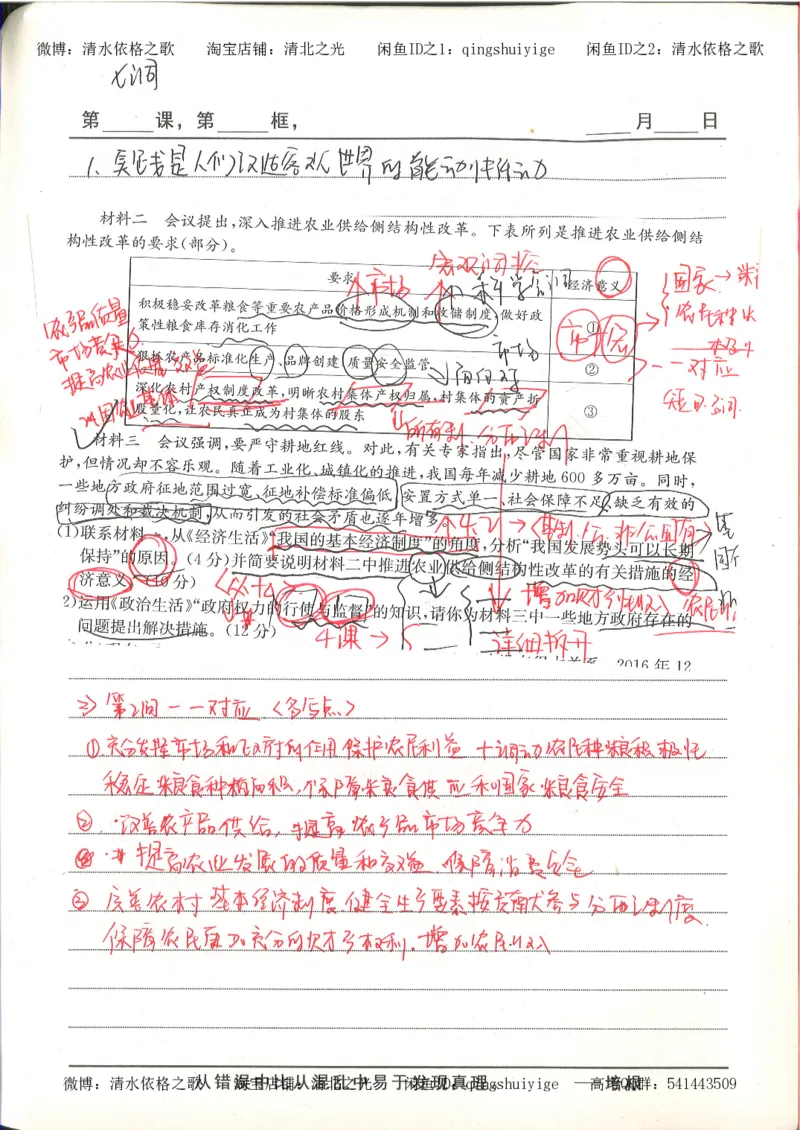 微博：清水依格之歌 淘宝店铺：清北之光 闲鱼ID之1：qingshuiyige 闲鱼ID之2：清水依格之歌
大词
第 课，第 框， 月 日
1. 实践是人们改造客观世界的能动性活动
材料二 会议提出,深入推进农业供给侧结构性改革。下表所列是推进农业供给侧结
构性改革的要求(部分)。
宏观调控
要求 经济意义
↑市场 ↑科学
国家→
积极稳妥改革粮食等重要农产品价格形成机制和收储制度,做好政
策性粮食库存消化工作
①
农产品质量
市场竞争
市场
狠抓农产品标准化生产、品牌创建、质量安全监管
②
一一对应
深化农村产权制度改革,明晰农村集体产权归属,村集体的资产折
股量化,让农民真正成为村集体的股东
③
所有制、分配制
材料三 会议强调,要严守耕地红线。对此,有关专家指出,尽管国家非常重视耕地保
护,但情况却不容乐观。随着工业化、城镇化的推进,我国每年减少耕地600多万亩。同时,
一些地方政府征地范围过宽、征地补偿标准偏低、安置方式单一、社会保障不足、缺乏有效的
纠纷调处和裁决机制,从而引发的社会矛盾也逐年增多
(1)联系材料一,从《经济生活》“我国的基本经济制度”的角度,分析“我国发展势头可以长期
保持”的原因。(4分)并简要说明材料二中推进农业供给侧结构性改革的有关措施的经
济意义。(10分)
增加财产性收入 农民
2)运用《政治生活》“政府权力的行使与监督”的知识,请你为材料三中一些地方政府存在的
问题提出解决措施。(12分)
4课→
详细拆开
2016年12
⇒第2问一一对应〈多写点〉
①充分发挥市场和政府的作用 保护农民利益 十调动农民种粮积极性
稳定粮食种植面积,保障粮食供应和国家粮食安全
②改善农产品供给,提高农产品市场竞争力
提高农业发展的质量和效益 保障消费安全
③完善农村基本经济制度、健全生产要素按贡献参与分配制度,
保障农民更加充分的财产权利,增加农民收入
从错误中比从混乱中易于发现真理。 —培根
微博：清水依格之歌 淘宝店铺：清北之光 闲鱼ID：qingshuiyige 高考QQ群：541443509